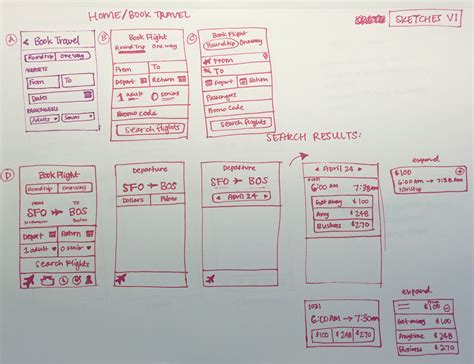 HOME/BOOK TRAVEL
SKETCHES V1
A
Book Travel
Roundtrip One way
AIRPORTS
From To
Dates
PASSENGERS
Adults Senior
B
Book Flight
Roundtrip One way
From To
Depart Return
1 Adult 0 Seniors
Promo code
Search flights
C
Book Flight
Roundtrip Oneway
From
To
Depart Return
Passengers
Promo Code
Search flights
SEARCH RESULTS:
D
Book Flight
Roundtrip Oneway
FROM TO
SFO BOS
Depart Return
1 adult 0 senior
Search Flights
Departure
SFO BOS
Dollars Points
Departure
SFO BOS
April 24
April 24
1021
6:00 AM 7:38
Getaway $100
Any $248
Business $270
expand
$100
6:00 AM 7:38
Nonstop
1021
6:00 AM 7:30am
$100 $248 $270
expand
$100
6:00 AM
Getaway $100
Anytime $248
Business $270